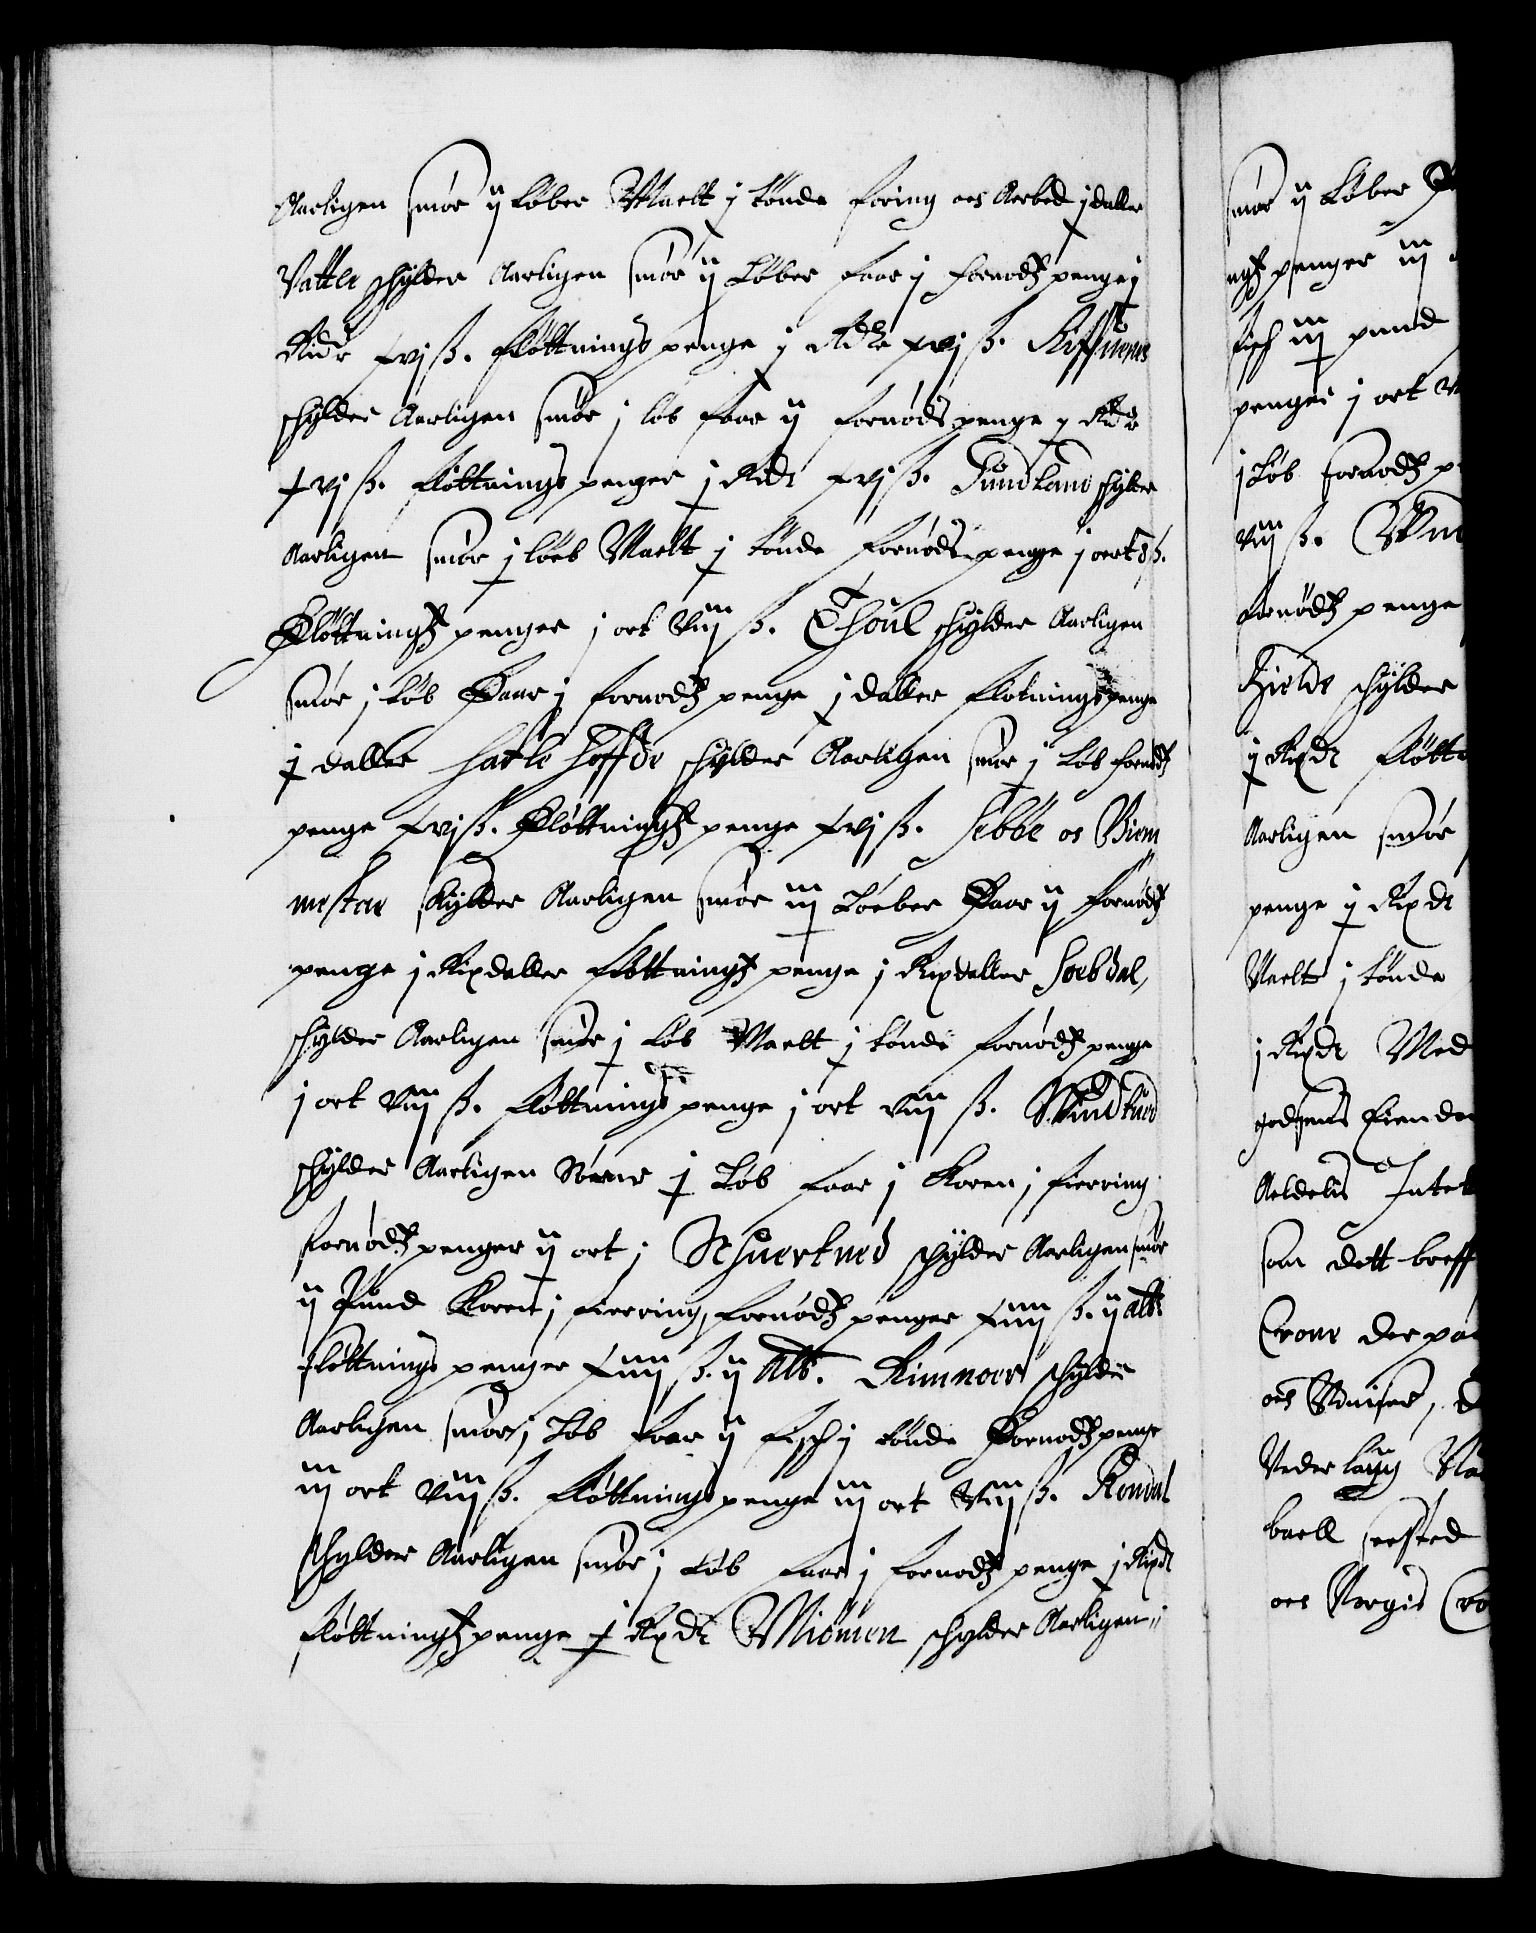 Aarligen smør ij Løber Maelt j tønde foring oc Arbed j daller
Vatle schylder Aarligen smør ij Løber faar j fornødz penge j
Rixdr xvj ß. Fløttnings penge j Rdr xvj ß. Riffsnnes
schylder Aarligen smør j løb faar ij fornøds penge j Rixdr
xvj ß. fløttnings penger j Rixdr xvj ß. Sundland schylder
Aarligen smør j løeb Maelt j tønde fornøds penge j oert 8 ß.
Fløttningz penger j ort viij ß. Thoul schylder Aarligen
smør j Løb Faar j fornødz penge j daller flotnings penge
j daller hatle hoffde schylder Aarligen smør j Løb fornødz
penge xvj ß. Fløttningz penge xvj ß. Sebbe oc Biern
mestar skylder Aarligen smør iij Løeber Faar ij fornødz
penge j Rixdaller fløttningz penge j Rixdaller Soebdal,
schylder Aarligen smør j Løb Maelt j tønde fornødz penge
j ort viij ß. fløttnings penge j ort viij ß.
schylder Aarligen Smør j Løb faar j Koren j fierring
fornødz penger ij ort j schylder Aarligen smør
ij Pund Koren j fierring, fornødz penger xiiij ß. ij alb
fløttnings penger xiiij ß. ij Alb. Rimnoer schylder
Aarligen smør j Løb faar ij fisch j tønde Fornødz penge
iij ort viij ß. fløttnings penge iij ort viij ß.
schylder Aarligen smør j Løb faar j fornødz penge j Rixdr
fløttningz penge j Rixdr Miømen schylder Aarligen

smør ij Løber
penger iij
fisch iij pund
penger j ort
j Løb fornødz
viij ß.
fornødz penge
schylder
ij Rixdr fløtt
Aarligen smør
penge ij Rixdr
Maelt j tønde
j Rixdr Med
godsens Eiende
som dett breff
Crone der paa
Vederlaug
oc Norgis Cro